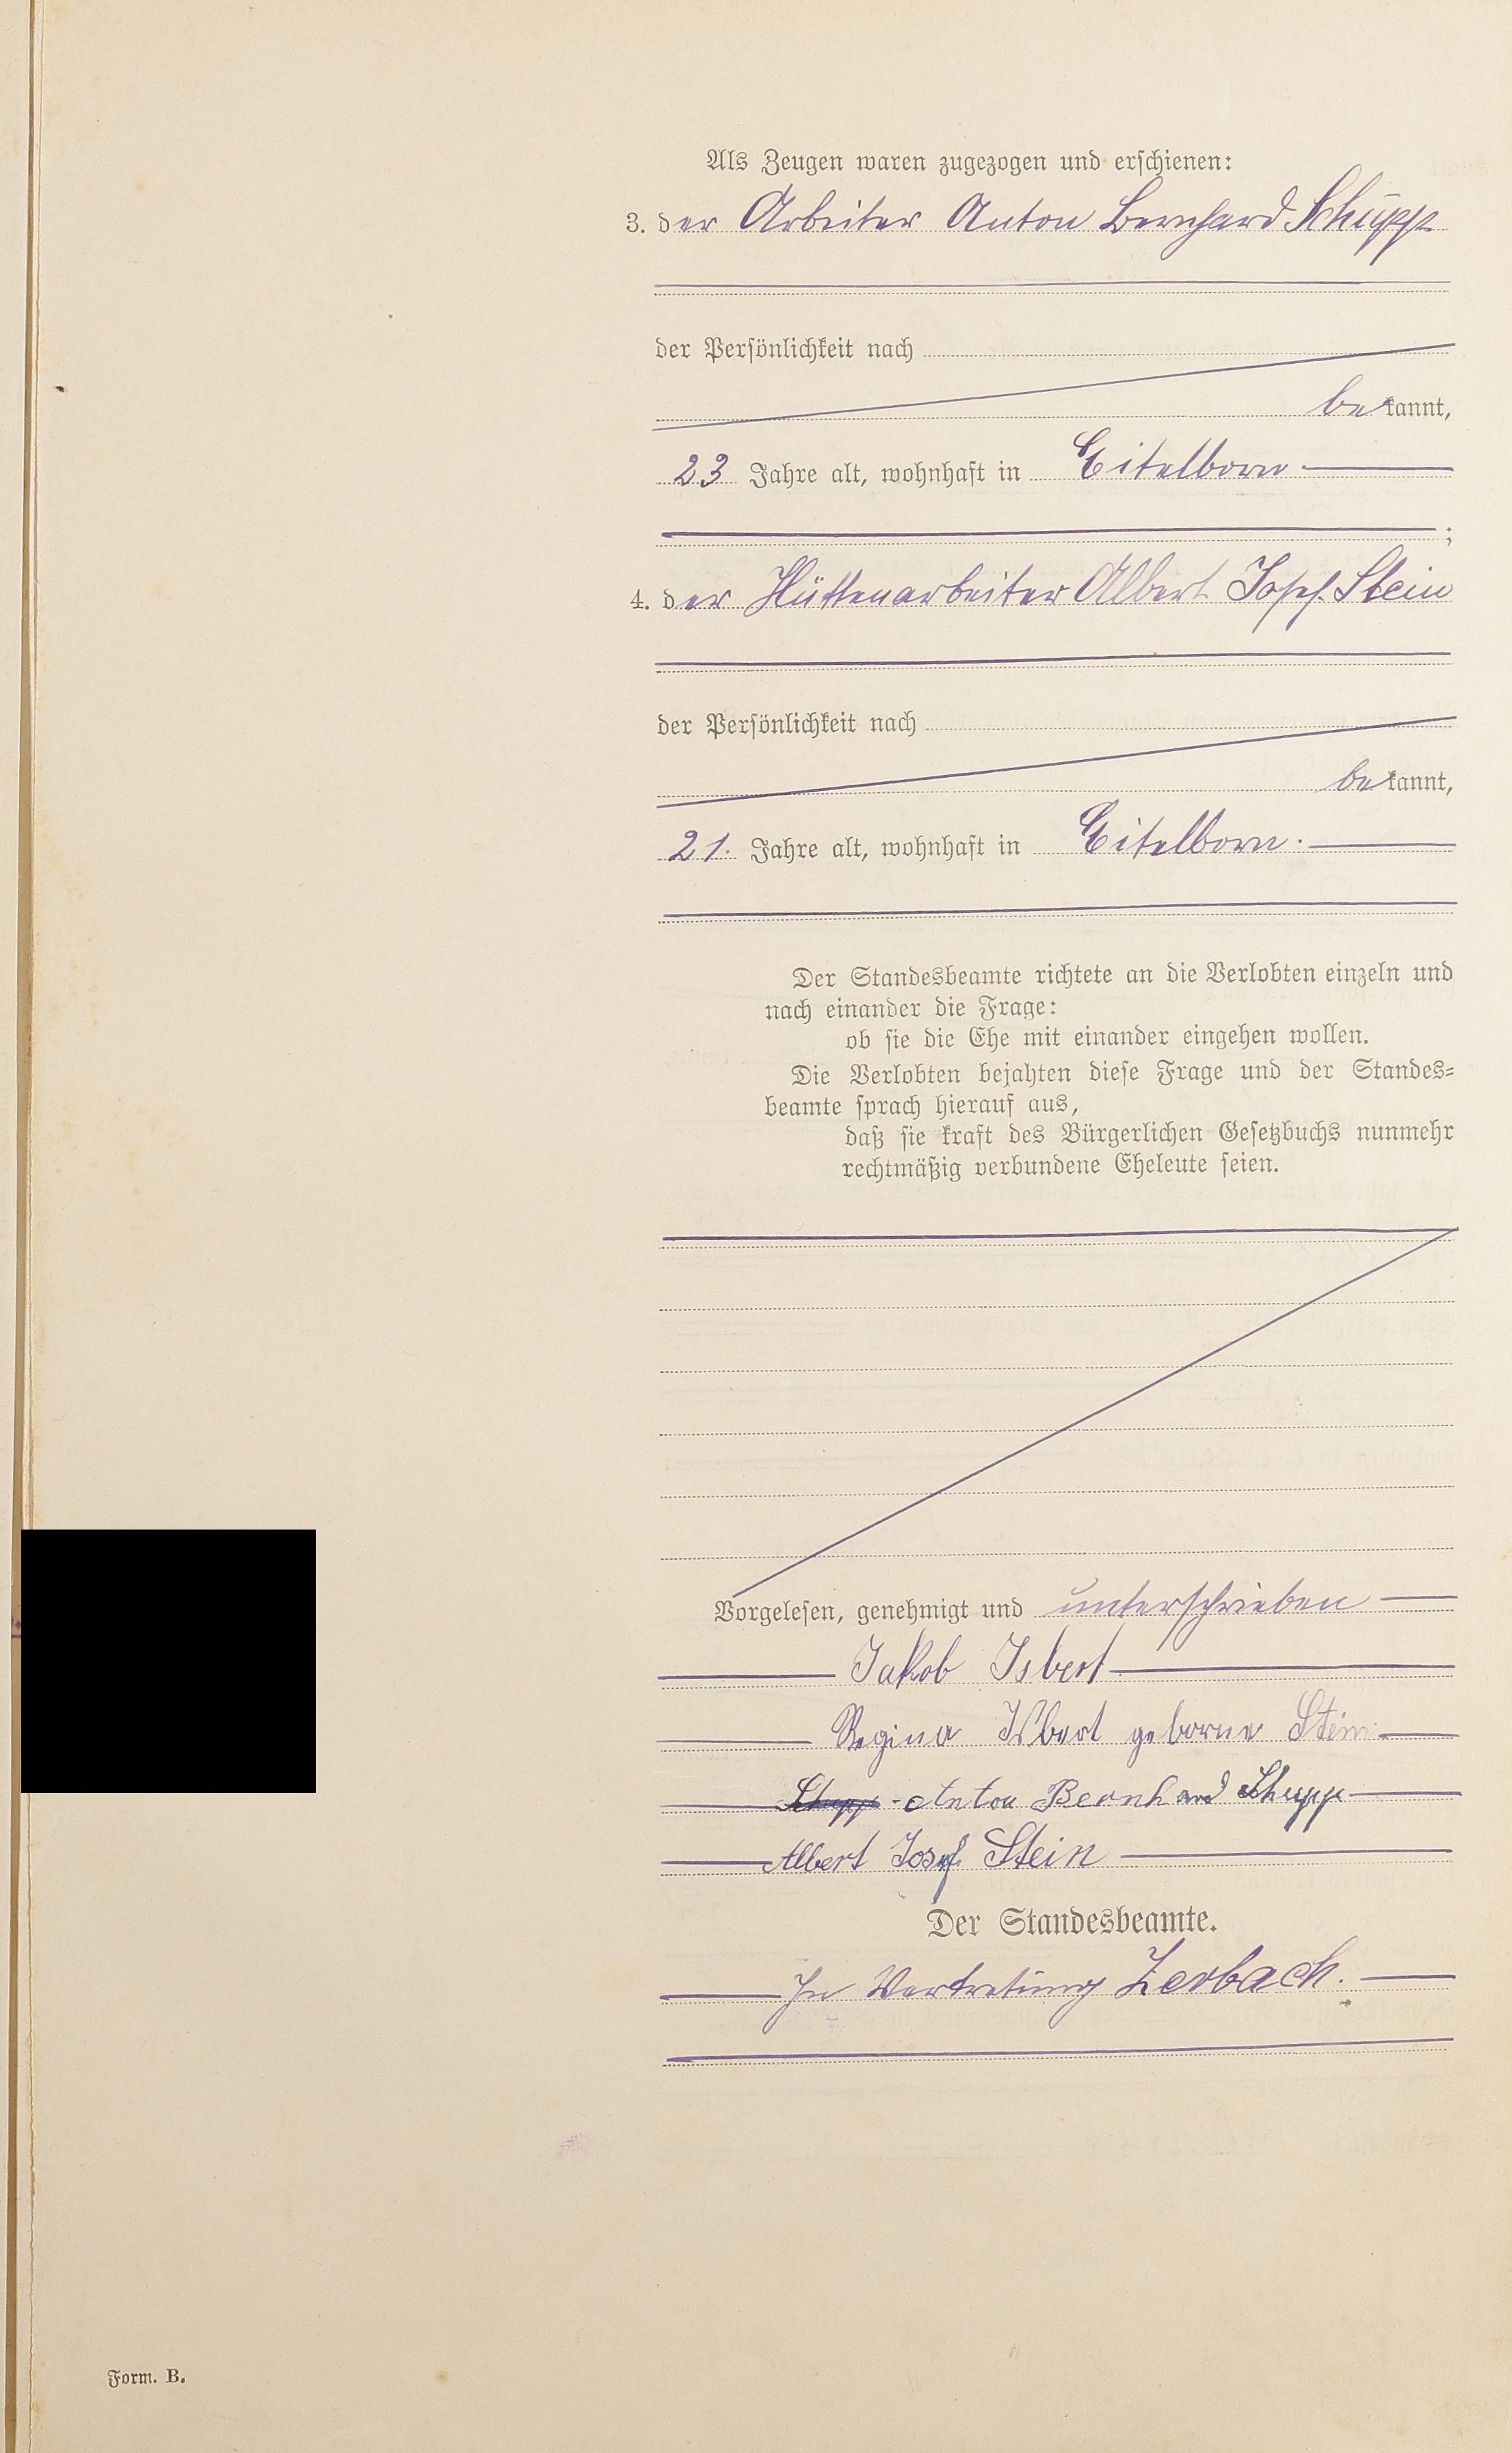 Als Zeugen waren zugezogen und erschienen:
3. der Arbeiter Anton Bernhard Schupp
der Persönlichkeit nach
bekannt,
23 Jahre alt, wohnhaft in Eitelborn
;
4. der Hüttenarbeiter Albert Josef Stein
der Persönlichkeit nach
bekannt,
21. Jahre alt, wohnhaft in Eitelborn.
Der Standesbeamte richtete an die Verlobten einzeln und
nach einander die Frage:
ob sie die Ehe mit einander eingehen wollen.
Die Verlobten bejahten diese Frage und der Standes-
beamte sprach hierauf aus,
daß sie kraft des Bürgerlichen Gesetzbuchs nunmehr
rechtmäßig verbundene Eheleute seien.
Vorgelesen, genehmigt und unterschrieben
Jakob Isbert
Regina Isbert geborne Stein
Schupp - Anton Bernhard Schupp
Albert Josef Stein
Der Standesbeamte.
In Vertretung Zerbach.
Form. B.